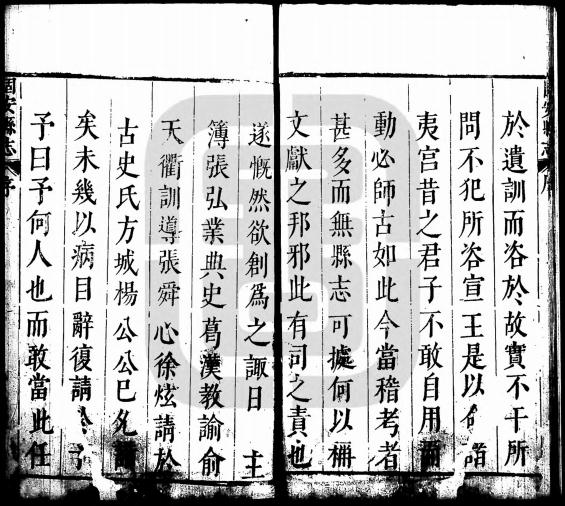 於遺訓而咨於故實不干所
問不犯所咨宣王是以命諸
夷宫昔之君子不敢自用
動必師古如此今當稽考者
甚多而無縣志可據何以稱
文獻之邦邪此有司之責也
遂慨然欲創爲之諏日 主
簿張弘業典史葛漢教諭俞
天衢訓導張舜心徐炫請於
古史氏方城楊公公巳
矣未幾以病目辭復請
予曰予何人也而敢當此任
固安縣志 序